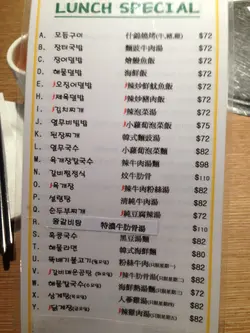 LUNCH SPECIAL
A. 모듬구이 什錦燒烤(牛,豬,雞) $72
B. 장터국밥 $72
C. 장어덮밥 燴鰻魚飯 $72
D. 해물덮밥 海鮮飯 $72
E. 오징어덮밥 辣炒鮮魷魚飯 $72
F. 제육덮밥 辣炒豬肉飯 $72
I. 김치찌개 辣泡菜湯 $72
J. 열무비빔밥 小蘿蔔泡菜飯 $75
K. 된장찌개 韓式麵豉湯 $72
L. 열무국수 小蘿蔔泡菜麵 $82
M. 육개장칼국수 辣牛肉湯麵 $98
N. 갈비찜정식 炆牛肋骨 $110
O. 육개장 辣牛肉粉絲湯 $82
P. 설렁탕 清純牛肉湯 $82
Q. 순두부찌개 辣純豆腐辣湯 $82
R. 왕갈비탕 特濃牛肋骨湯 $110
S. 흑콩국수 黑豆湯麵 $82
T. 해물라면 韓式海鮮麵 $80
U. 뚝배기불고기 $82
V. 辣牛肋骨湯 $82
W. 해물칼국수 海鮮熱湯麵 $82
X. 삼계탕 人參雞湯 $82
Y. 닭계장 辣雞肉湯 $82